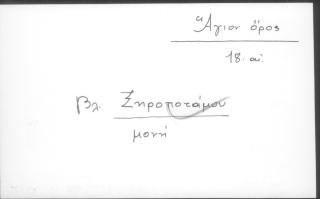 Ἅγιον ὄρος
18. αἰ.
Βλ. Ξηροποτάμου
μονή